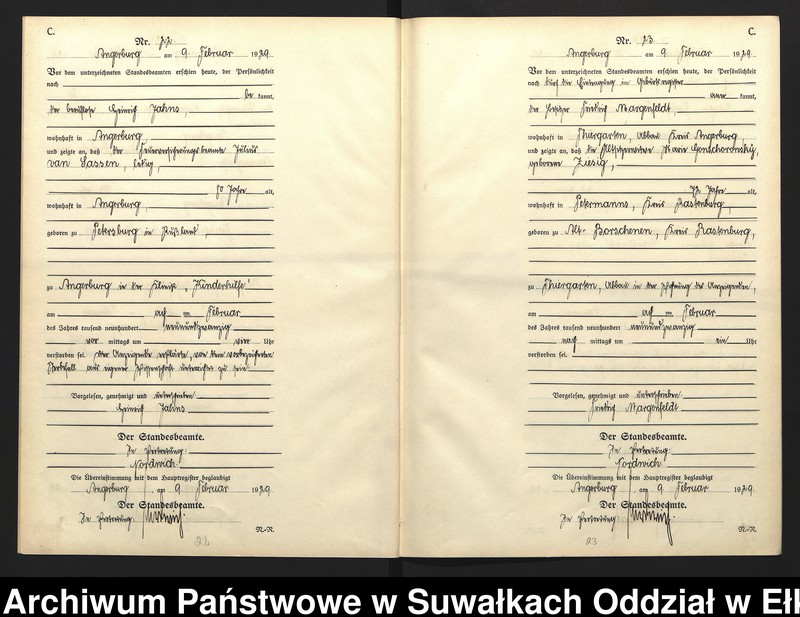 C.
Nr. 22
Angerburg am 9. Februar 1929
Vor dem unterzeichneten Standesbeamten erschien heute, der Persönlichkeit
nach
be kannt,
der berufslose Heinrich Jahns,
wohnhaft in Angerburg,
und zeigte an, daß der Feuerversicherungsbeamte Julius
van Sassen, ledig,
80 Jahre alt,
wohnhaft in Angerburg,
geboren zu Petersburg in Rußland,
zu Angerburg in der Klinik „Kinderhilfe"
am acht en Februar
des Jahres tausend neunhundert neunundzwanzig
vor mittags um vier Uhr
verstorben sei. Der Anzeigende erklärte, von dem vorbezeichneten
Sterbefall aus eigener Wissenschaft unterrichtet zu sein.
Vorgelesen, genehmigt und unterschrieben
Heinrich Jahns
Der Standesbeamte.
In Vertretung:
Nordwich
Die Übereinstimmung mit dem Hauptregister beglaubigt
Angerburg, am 9. Februar 1929
Der Standesbeamte.
In Vertretung:
N.-R.
22
C.
Nr. 23
Angerburg am 9. Februar 1929
Vor dem unterzeichneten Standesbeamten erschien heute, der Persönlichkeit
nach durch die Eintragung im Geburtsregister
aner kannt,
der Besitzer Friedrich Margenfeldt,
wohnhaft in Thiergarten, Abbau Kreis Angerburg,
und zeigte an, daß die Altsitzerwitwe Marie Gonschorowskij,
geborene Ziesig,
72 Jahre alt,
wohnhaft in Petermanns, Kreis Rastenburg,
geboren zu Alt-Borschenen, Kreis Rastenburg,
zu Thiergarten, Abbau in der Wohnung des Anzeigenden,
am acht en Februar
des Jahres tausend neunhundert neunundzwanzig
nach mittags um ein Uhr
verstorben sei.
Vorgelesen, genehmigt und unterschrieben
Friedrich Margenfeldt
Der Standesbeamte.
In Vertretung:
Nordwich
Die Übereinstimmung mit dem Hauptregister beglaubigt
Angerburg, am 9. Februar 1929
Der Standesbeamte.
In Vertretung:
N.-R.
23
Archiwum Państwowe w Suwałkach Oddział w Ełk